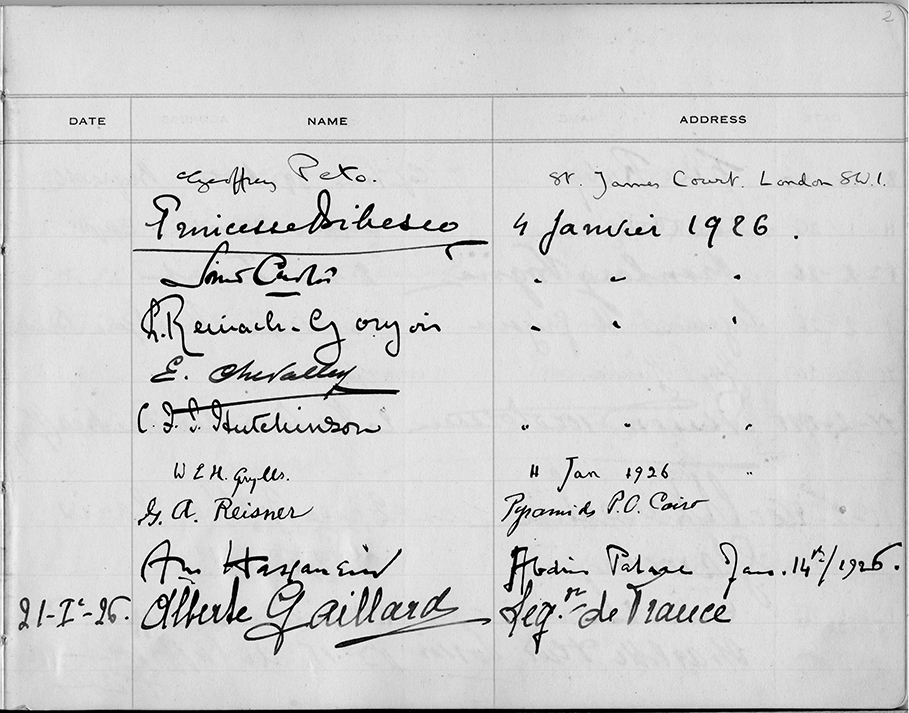 2
DATE NAME ADDRESS
Geoffrey Peto. St. James Court. London S.W.1.
Princesse Bibesco 4 Janvier 1926.
" " "
Reinach-Gourgoin " " "
E. Chevalley
C. F. S. Hutchinson " " "
W E H. Grylls. 11 Jan 1926 "
G. A. Reisner Pyramids P.O. Cairo
Hassanein Abdin Palace Jan. 14th/1926.
21-Ie-26. Alberte Gaillard Legn de France